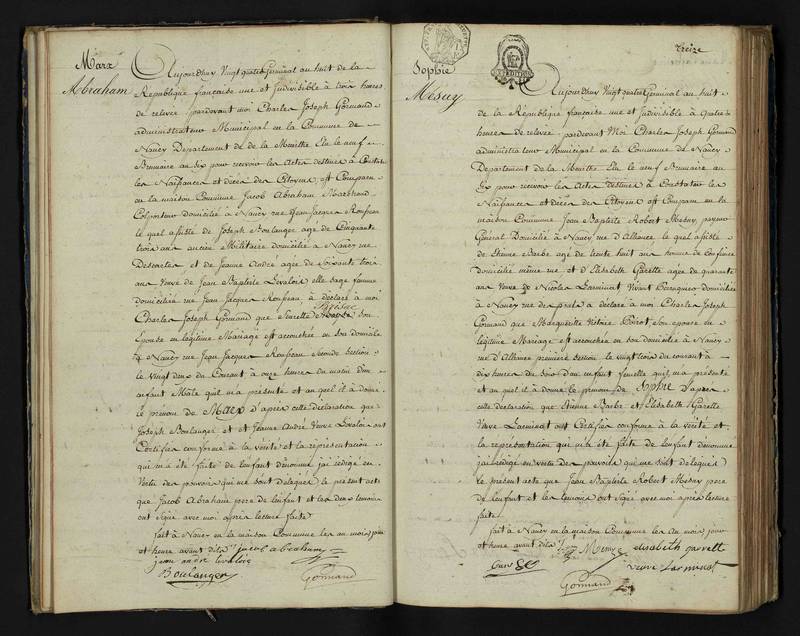 Marx
Abraham
Aujourdhuy Vingt quatre Germinal au huit de la
République française une et Indivisible à trois heures
de relevée pardevant moi Charles Joseph Gormand
administrateur Municipal en la Commune de
Nancy Departement de la Meurthe Elu le neuf
Brumaire an six pour recevoir les Actes destinés à Constater
les Naissances et décès des Citoyens est Comparu
en la maison Commune Jacob Abraham Marchand
Colporteur domicilié à Nancy rue Jean Jacques Rousseau
le quel assisté de Joseph Boulanger age de Cinquante
trois ans ancien Militaire domicilié à Nancy rue
Descartes et de Jeanne André agée de Soixante trois
ans Veuve de Jean Baptiste Levaloir elle sage femme
domiciliée rue Jean Jacques Rousseau, à déclaré à moi
Charles Joseph Gormand que Seurette son
Epouse en légitime Mariage est accouchée en son domicile
à Nancy rue Jean Jacques Rousseau Seconde Section
le Vingt deux du Courant à onze heures du matin d'un
enfant Male qu'il m'a présenté et au quel il à donné
le prenom de Marx D'après cette déclaration que
Joseph Boulanger et Jeanne André Veuve Levaloir ont
Certifiés conforme à la Vérité et la représentation
qui m'a été faite de l'enfant dénommé jai rédigé en
Vertu des pouvoirs qui me sont délégués le présent acte
que Jacob Abraham pere de l'enfant et les deux temoins
ont Signé avec moi après lecture faite
fait à Nancy en la maison Commune les an mois jour
et heure avant dits jacob abraham
jean andre levaloir
Boulanger Gormand
treize
Sophie
Mesny
Aujourdhuy Vingt quatre Germinal au huit
de la République française une et Indivisible à quatre
heures de relevée pardevant Moi Charles Joseph Gormand
administrateur Municipal en la Commune de Nancy
Departement de la Meurthe Elu le neuf Brumaire an
Six pour recevoir les Actes destinés à Constater les
Naissances et décès des Citoyens est Comparu en la
maison Commune Jean Baptiste Robert Mesny, payeur
Général Domicilié à Nancy rue d'Alliance, le quel assisté
de Etienne Barbe agé de trente huit ans homme de Confiance
domicilié même rue et d'Elisabeth Garette agée de quarante
ans Veuve de Nicolas Larminat Vivant domiciliée
à Nancy rue des prets à déclaré à moi Charles Joseph
Gormand que Marguerite Victoire Poirot, Son epouse en
légitime Mariage est accouchée en son domicile à Nancy
rue d'Alliance première section le vingt trois du courant à
dix heures du soir d'un enfant femelle qu'il m'a présenté
et au quel il à donné le prenom de Sophie D'après
cette déclaration que Etienne Barbe et Elisabeth Garette
Veuve Larminat ont Certifiés conforme à la vérité et
la représentation qui m'a été faite de l'enfant dénommé
jai rédigé en vertu des pouvoirs qui me sont délégués
le présent acte que Jean Baptiste Robert Mesny pere
de l'enfant et les temoins ont Signé avec moi après lecture
faite
fait à Nancy en la maison Commune les an mois jour
et heure avant dits Mesny elisabeth garrett
veuve larminat
Gormand